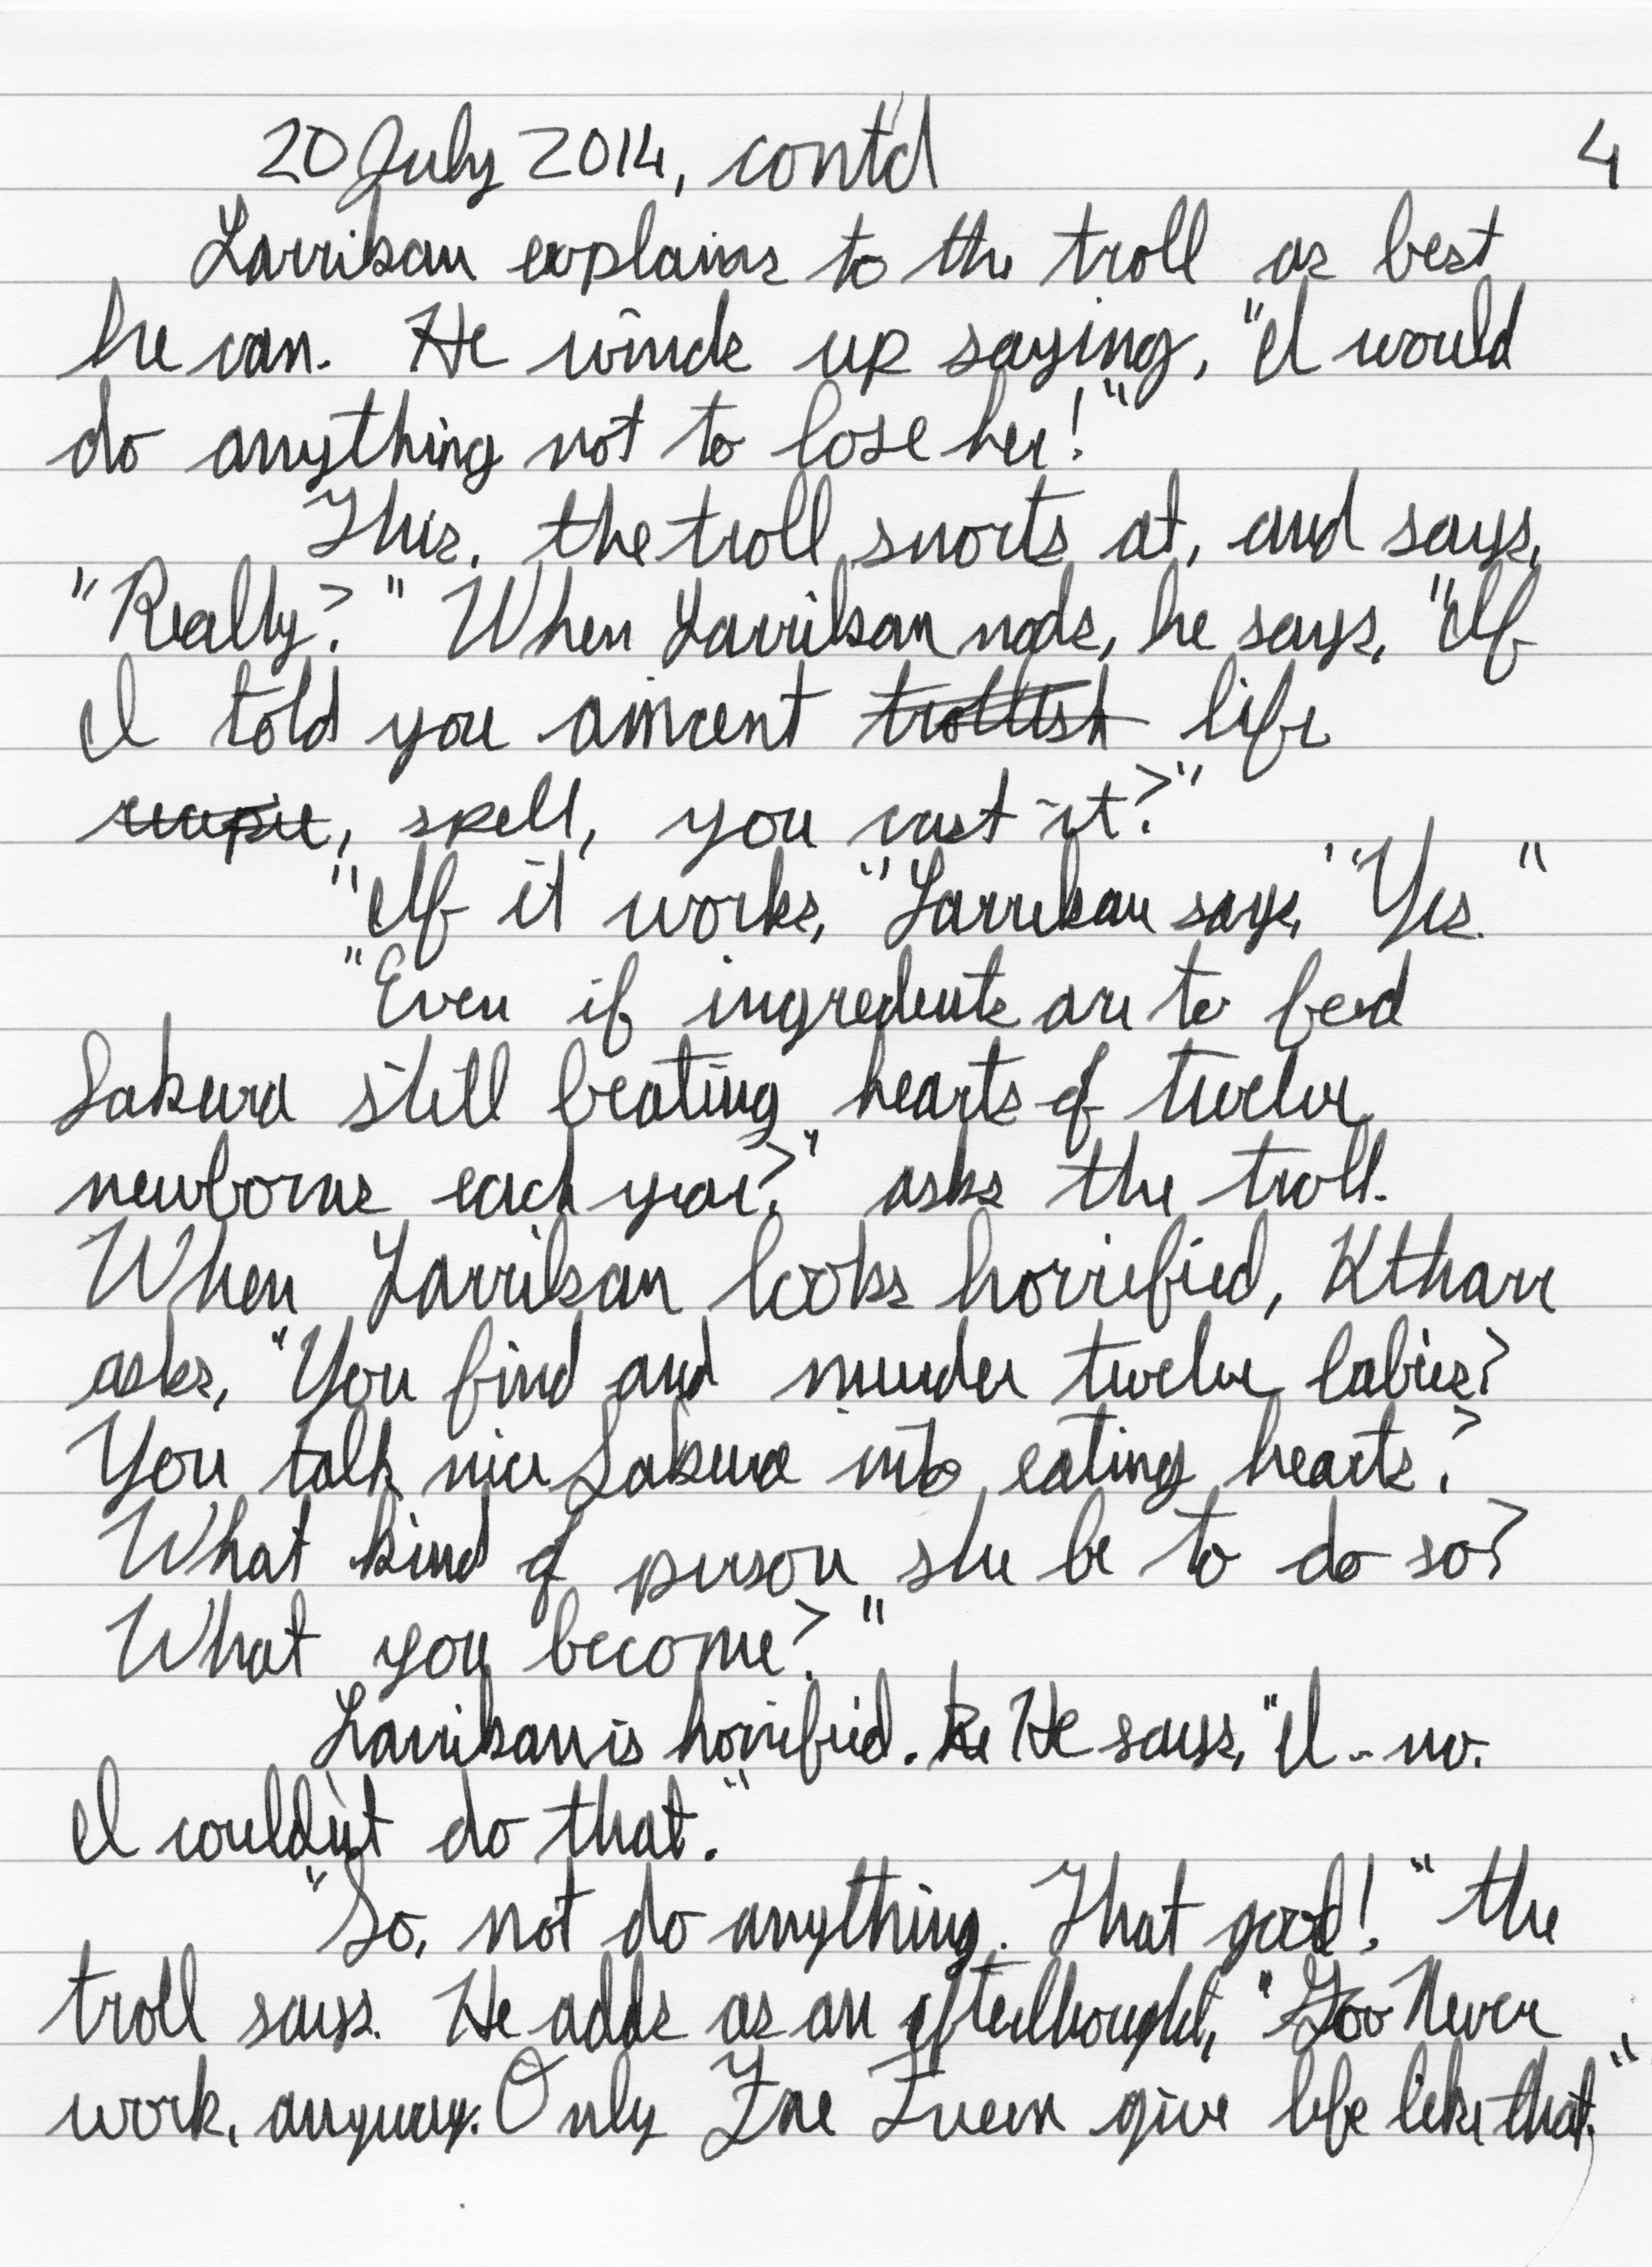 20 July 2014, cont'd 4
Larrikan explains to the troll as best
he can. He winds up saying, "I would
do anything not to lose her!"
This, the troll snorts at, and says,
"Really?" When Larrikan nods, he says, "If
I told you aincent trollish life
recipie, spell, you cast it?"
"If it works," Larrikan says, "Yes."
"Even if ingredients are to feed
Sakura still beating hearts of twelve
newborns each year?" asks the troll.
When Larrikan looks horrified, Ktharr
asks, "You find and murder twelve babies?
You talk nice Sakura into eating hearts?
What kind of person she be to do so?
What you become?"
Larrikan is horrified. He He says, "I -- no.
I couldn't do that."
"So, not do anything. That good!" the
troll says. He adds as an afterthought, "Too Never
work, anyway. Only Fae give life like that."